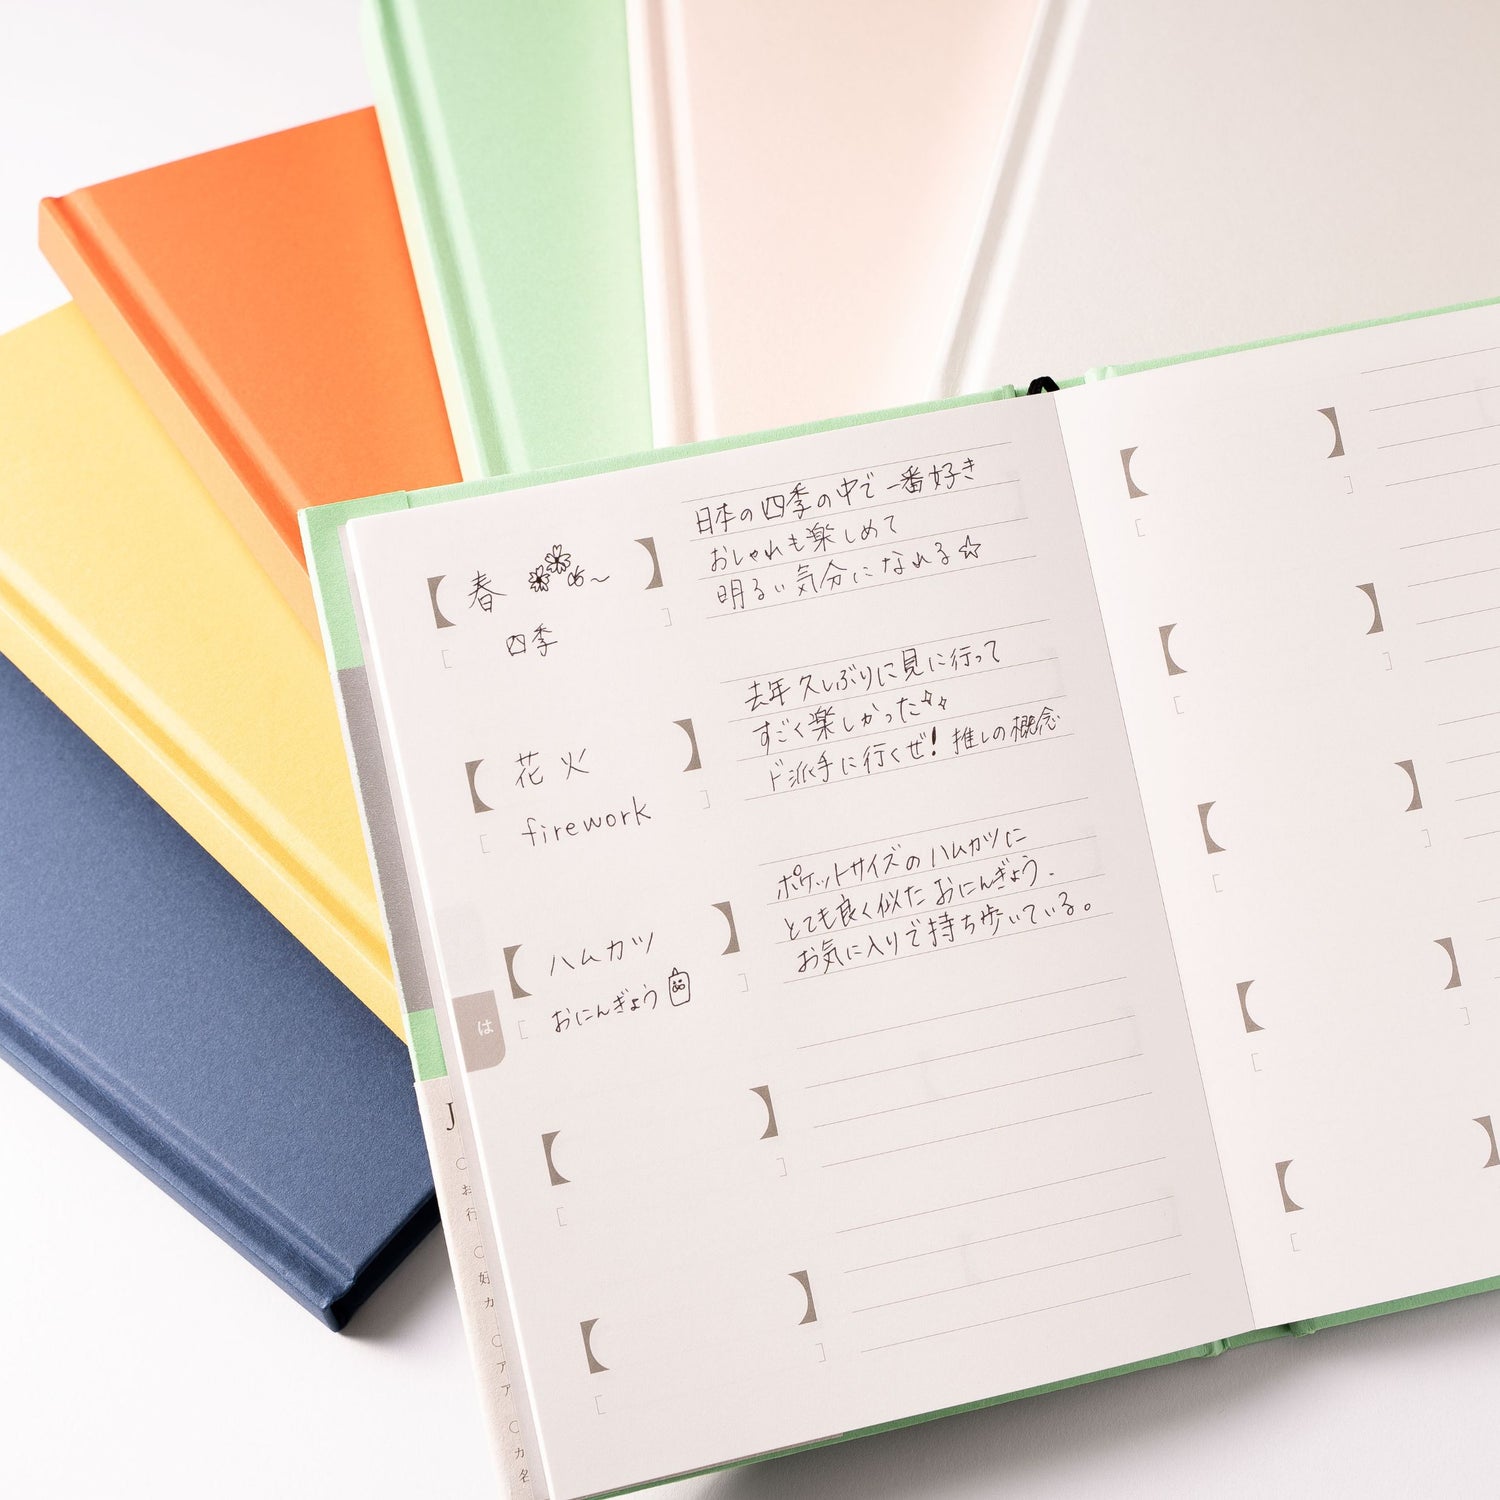 春
四季
日本の四季の中で一番好き
おしゃれも楽しめて
明るい気分になれる☆
花火
firework
去年久しぶりに見に行って
すごく楽しかった
ド派手に行くぜ!推しの概念
ハムカツ
おにんぎょう
ポケットサイズのハムカツに
とても良く似たおにんぎょう.
お気に入りで持ち歩いている。
は
J